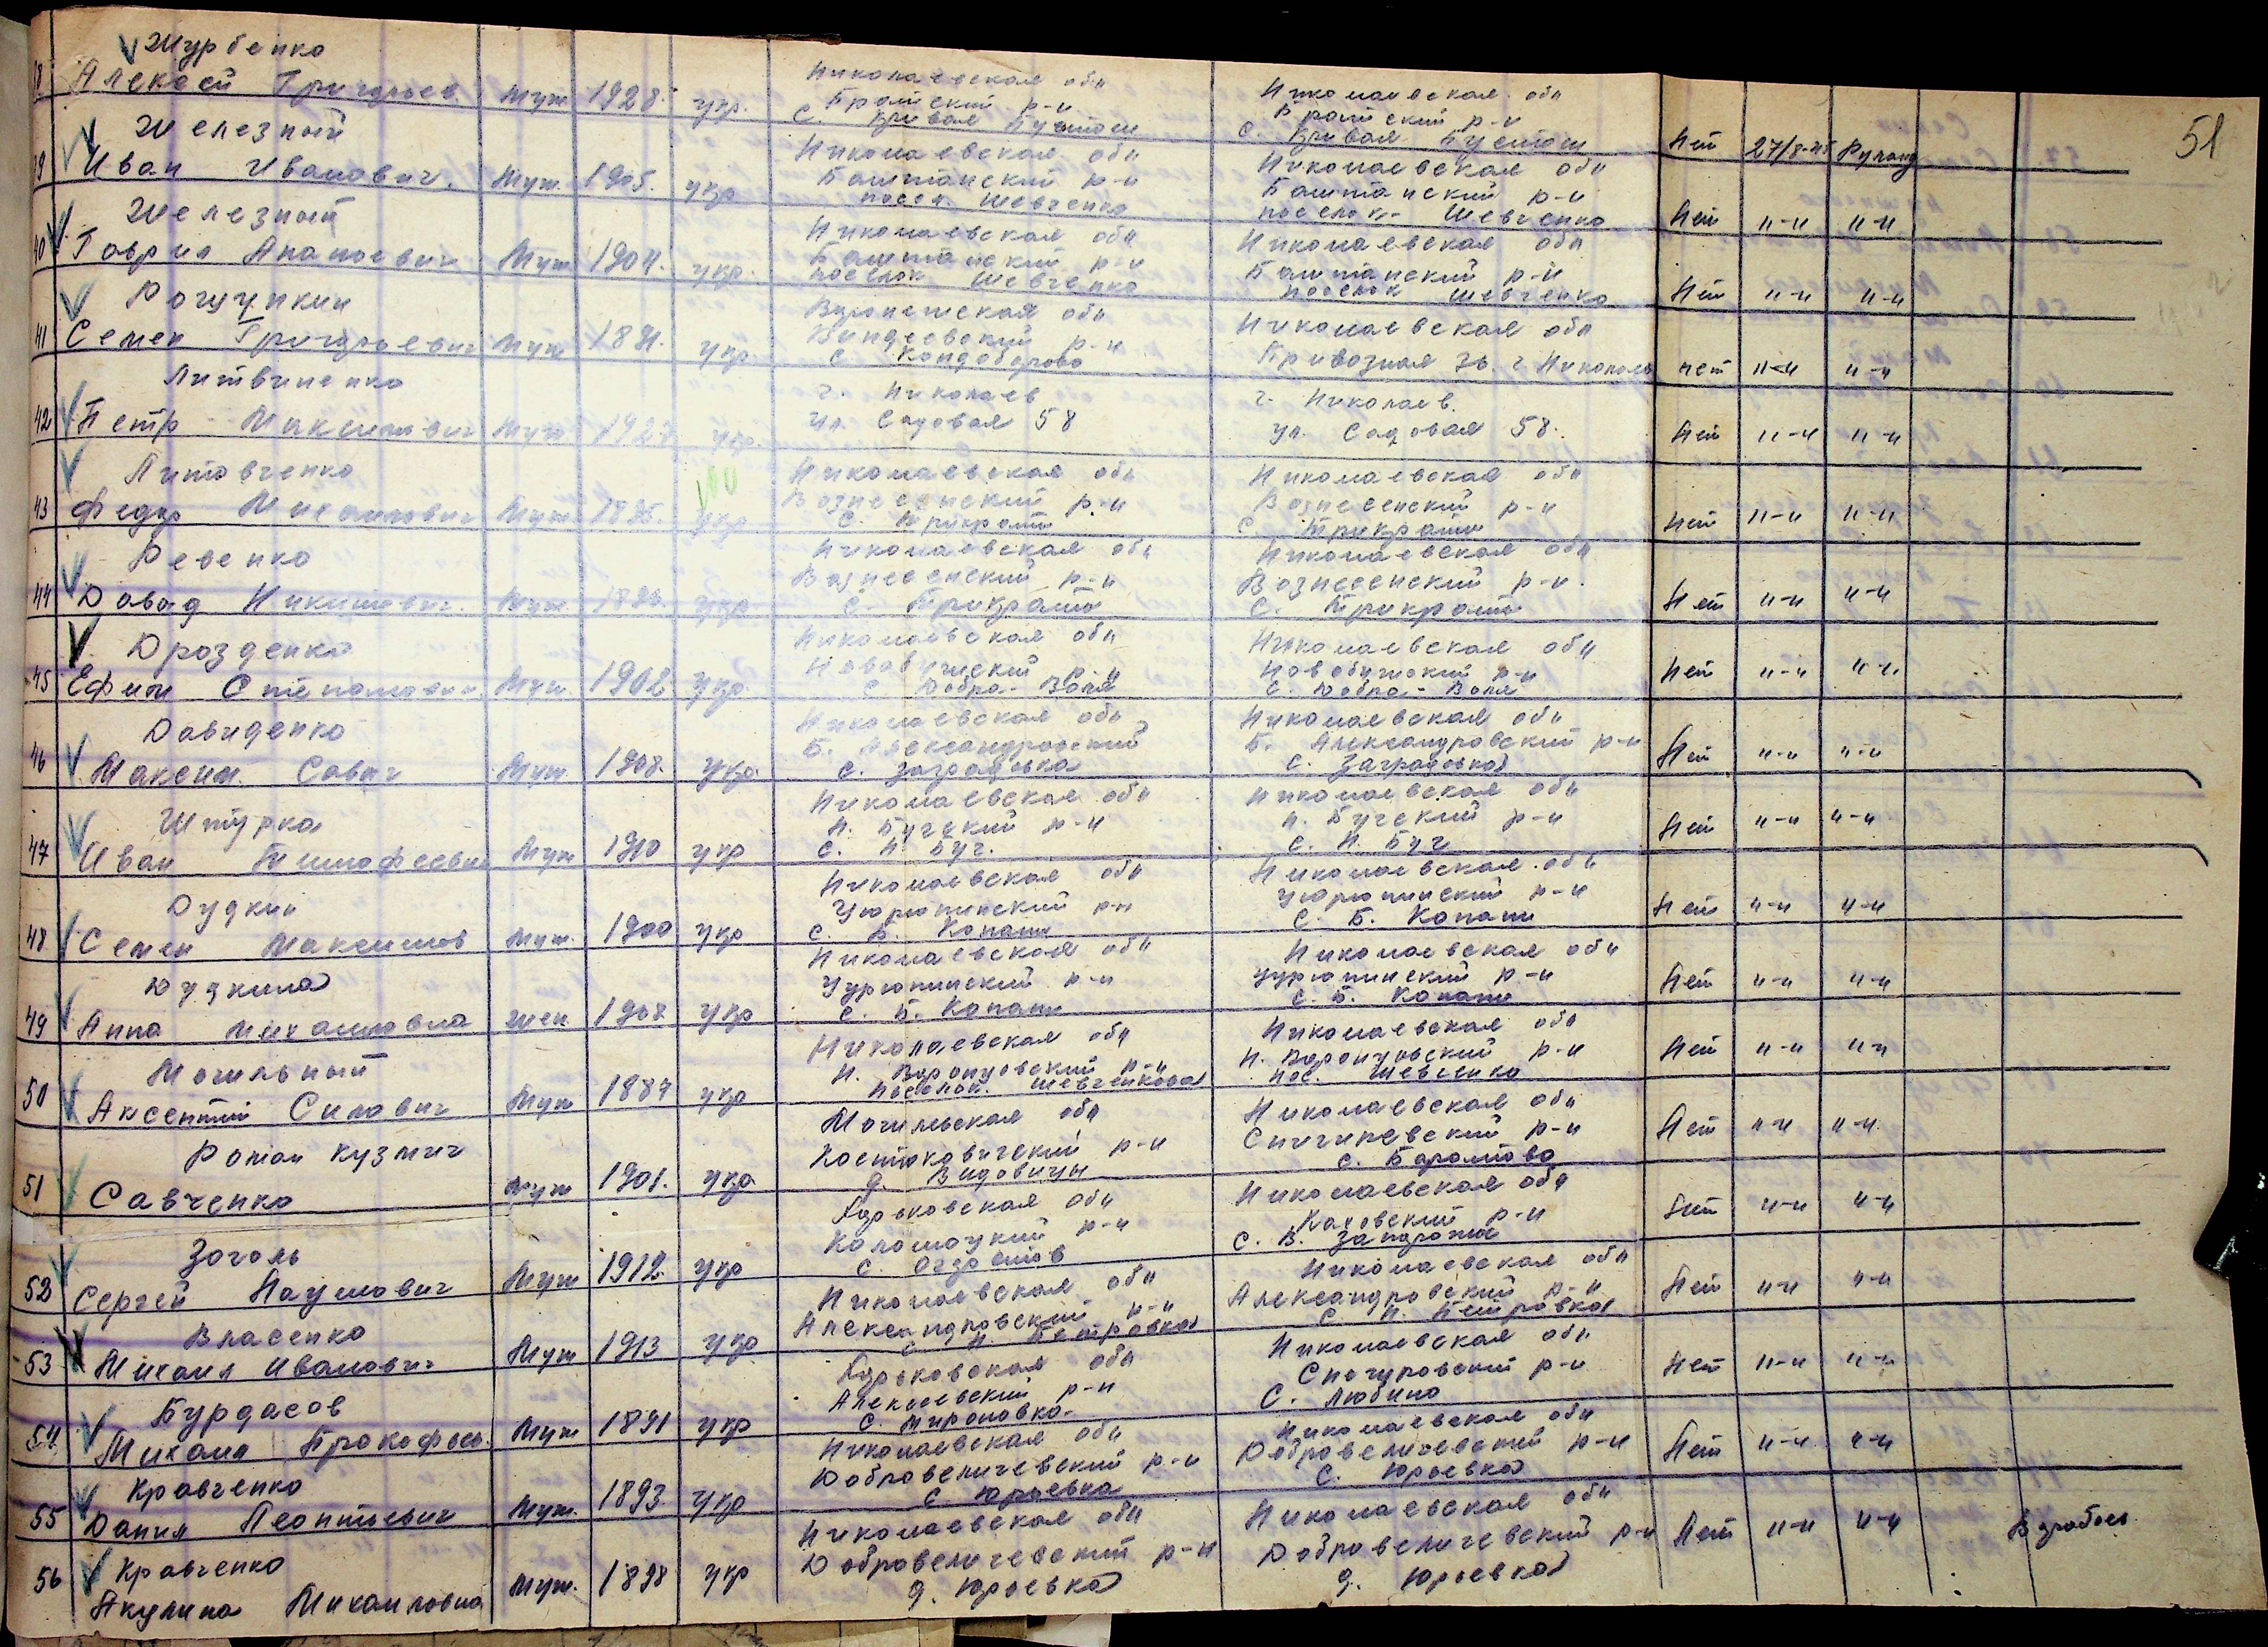 51
Журбенко
38 Алексей Григорьев. муж 1928. укр. Николаевская обл Братский р-н с. Кривая Пустош Николаевская обл Братский р-н с. Кривая Пустош Нет 27/8-45 Румынд
Железный
39 Иван Иванович. муж. 1905. укр Николаевская обл Баштанский р-н посел Шевченко Николаевская обл Баштанский р-н поселок Шевченко Нет "-" "-"
Железный
40 Гаврил Апанасевич муж 1904. укр. Николаевская обл Баштанский р-н поселок Шевченко Николаевская обл Баштанский р-н поселок Шевченко Нет "-" "-"
Рощупкин
41 Семен Григорьевич муж 1891. укр. Воронежская обл р-н с. Николаевская обл Привозная 76 г Николаев нет "-" "-"
Литвиненко
42 Петр Максимович муж 1927 укр. г. Николаев ул. Садовая 58 г. Николаев. ул. Садовая 58. Нет "-" "-"
Литовченко
43 Федор Михайлович муж 1895. укр Николаевская обл Вознесенский р-н с. Трикраты Николаевская обл Вознесенский р-н с. Трикраты Нет "-" "-"
Ревенко
44 Давид Никитович. муж укр. Николаевская обл Вознесенский р-н с. Трикраты Николаевская обл Вознесенский р-н. с. Трикраты Нет "-" "-"
Дрозденко
45 Ефим Степанович муж 1902 укр. Николаевская обл Новобугский р-н с. Добра-Воля Николаевская обл Новобугский р-н с. Добра-Воля Нет "-" "-"
Давиденко
46 Максим Савич муж 1908. укр. Николаевская обл Б. Александровский с. Заградовка Николаевская обл Б. Александровский р-н с. Заградовка Нет "-" "-"
Штурка
47 Иван Тимофеевич муж 1910 укр Николаевская обл Н. Бугский р-н с. Н. Буг. Николаевская обл Н. Бугский р-н с. Н. Буг Нет "-" "-"
Дудкин
48 Семен Максимов муж. 1900 укр Николаевская обл Цюрюпинский р-н с. Б. Копани Николаевская обл Цюрюпинский р-н с. Б. Копани Нет "-" "-"
Дудкина
49 Анна Михайловна жен 1908 укр Николаевская обл Цурюпинский р-н с. Б. Копани Николаевская обл Цурюпинский р-н с. Б. Копани Нет "-" "-"
Могильный
50 Аксентий Силович муж 1887 укр Николаевская обл Н. Воронцовский р-н поселок. Шевченкова Николаевская обл Н. Воронцовский р-н пос. Шевченко Нет "-" "-"
Роман Кузмич
51 Савченко муж 1901. укр Могилевская обл Костюковичский р-н д. Видовицы Николаевская обл Снигиревский р-н с. Баратово Нет "-" "-"
Зоголь
52 Сергей Наумович муж 1912 укр Харьковская обл Коломацкий р-н с. Николаевская обл Каховский р-н с. В. Запорожье Нет "-" "-"
Власенко
53 Михаил Иванович муж 1913 укр Николаевская обл Александровский р-н с. Н. Петровка Николаевская обл Александровский р-н с. Н. Петровка Нет "-" "-"
Бурдасов
54 Михаил Прокофьев. муж 1891 укр Харьковская обл Алексеевский р-н с. Мироновка. Николаевская обл Снегуровский р-н с. Любино Нет "-" "-"
Кравченко
55 Данил Леонтьевич муж. 1893 укр Николаевская обл Добровеличевский р-н с. Юрьевка Николаевская обл Добровеличевский р-н с. Юрьевка Нет "-" "-"
Кравченко
56 Акулина Михайловна муж. 1898 укр Николаевская обл Добровеличевский р-н д. Юрьевка Николаевская обл Добровеличевский р-н д. Юрьевка Нет "-" "-"